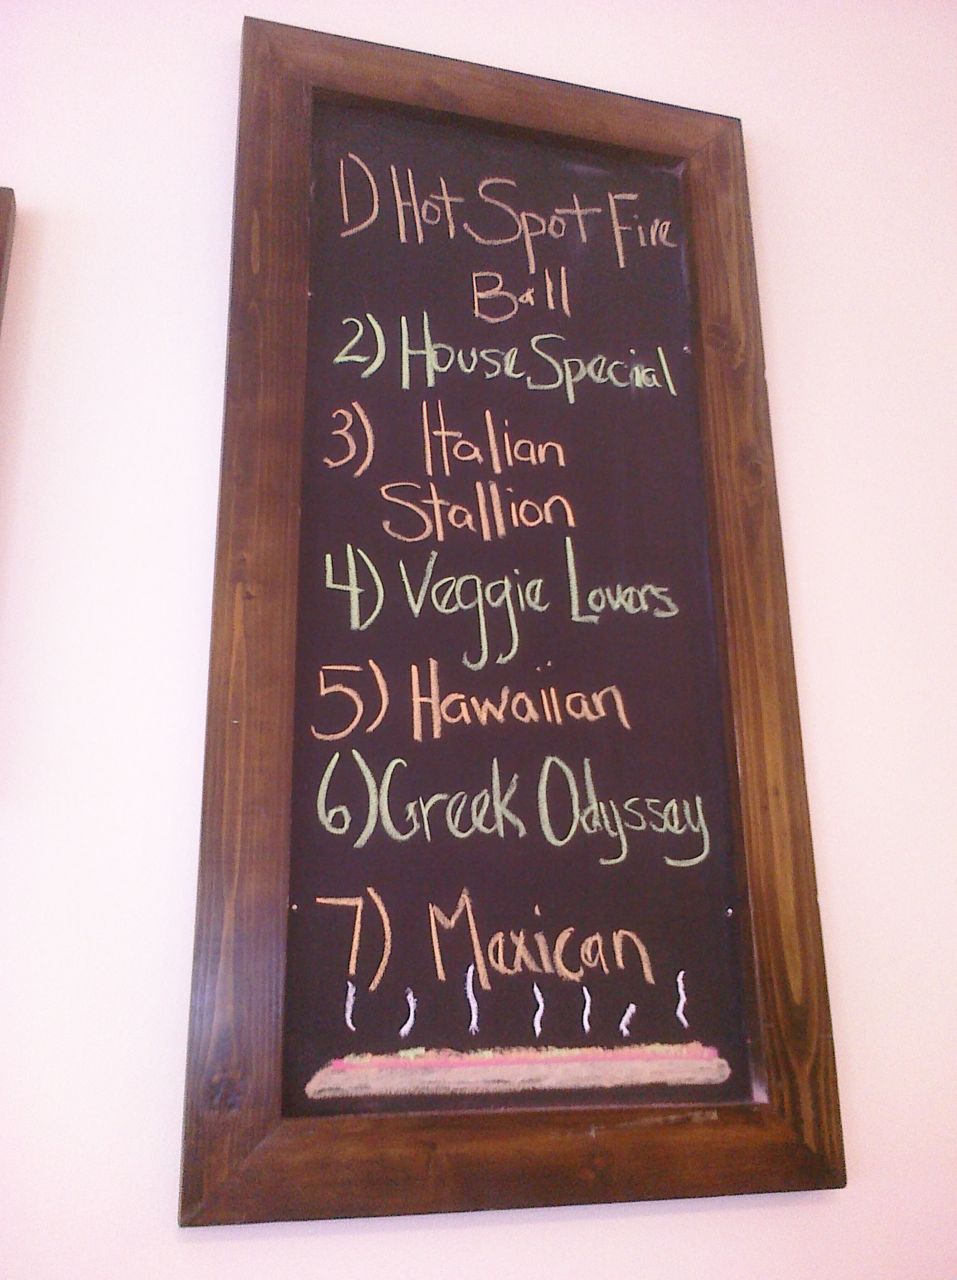 1) Hot Spot Fire
Ball
2) House Special
3) Italian
Stallion
4) Veggie Lovers
5) Hawaiian
6) Greek Odyssey
7) Mexican